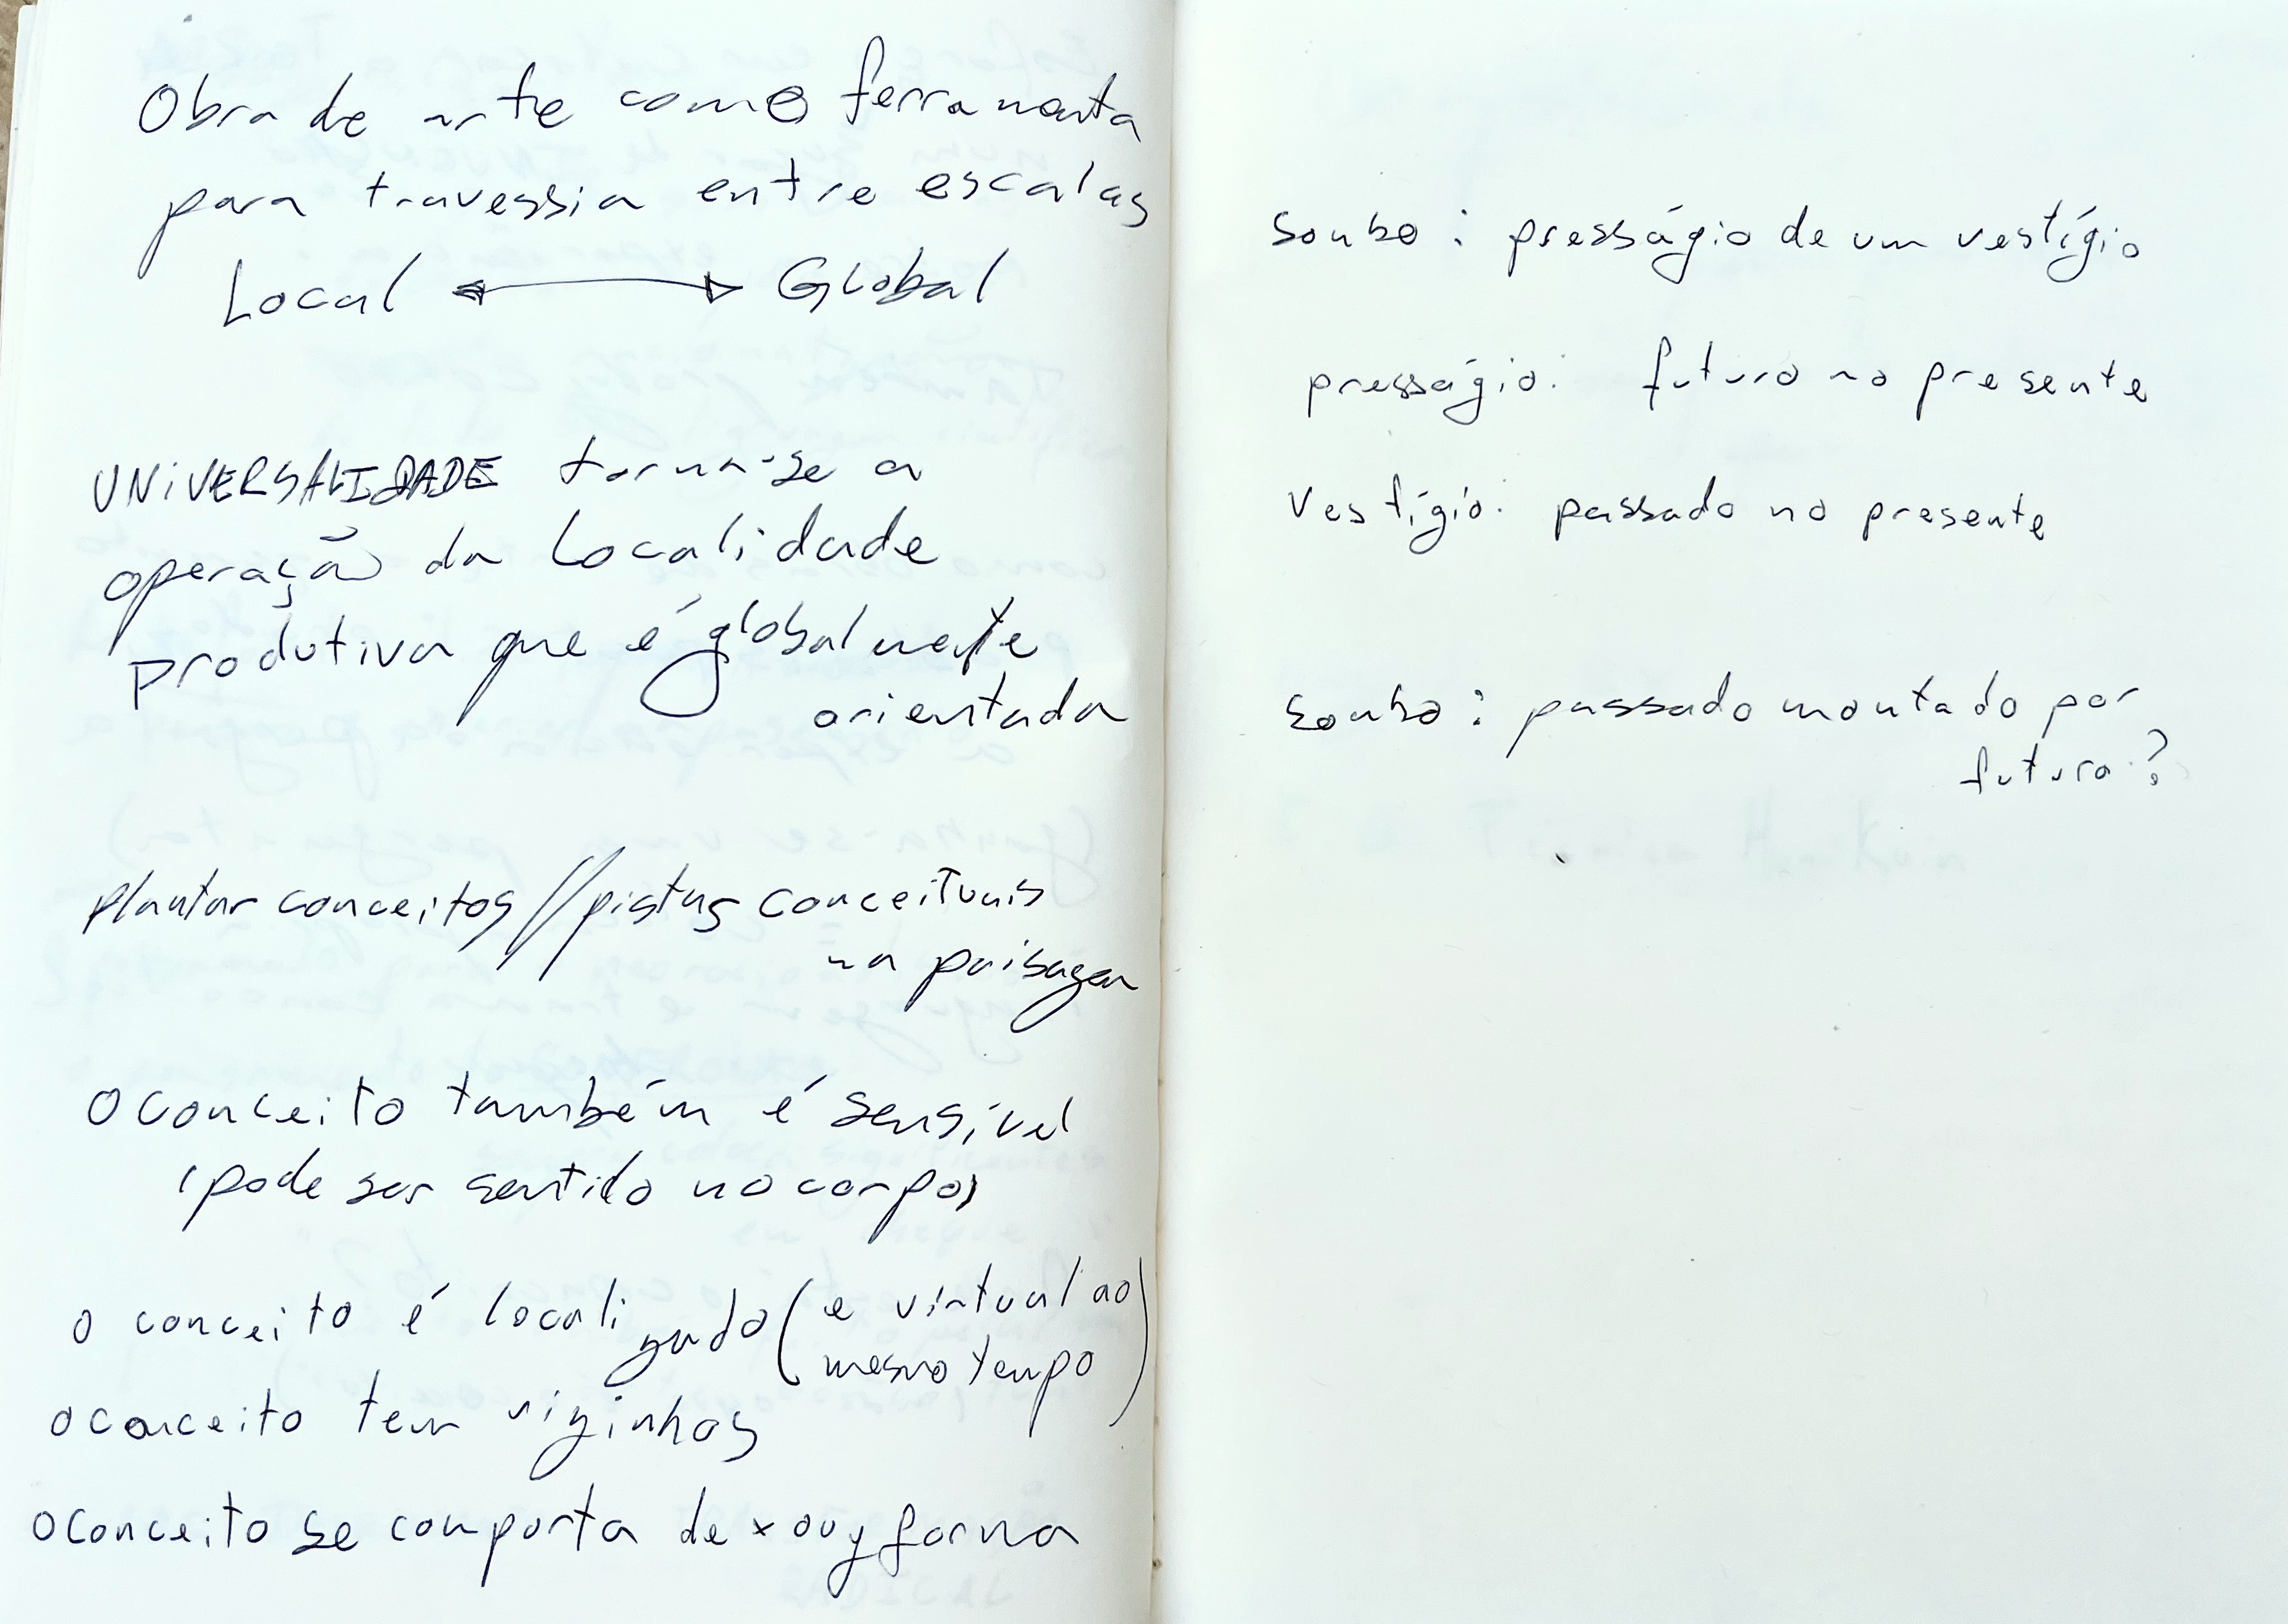 Obra de arte como ferramenta
para travessia entre escalas
Local ↔ Global
UNIVERSALIDADE torna-se a
operação da localidade
produtiva que é globalmente
orientada
plantar conceitos // pistas conceituais
na paisagem
O conceito também é sensível
(pode ser sentido no corpo)
o conceito é localizado (e virtual ao
mesmo tempo)
o conceito tem vizinhos
O conceito se comporta de x ou y forma
sonho: presságio de um vestígio
presságio: futuro no presente
Vestígio: passado no presente
sonho: passado montado por
futuro?